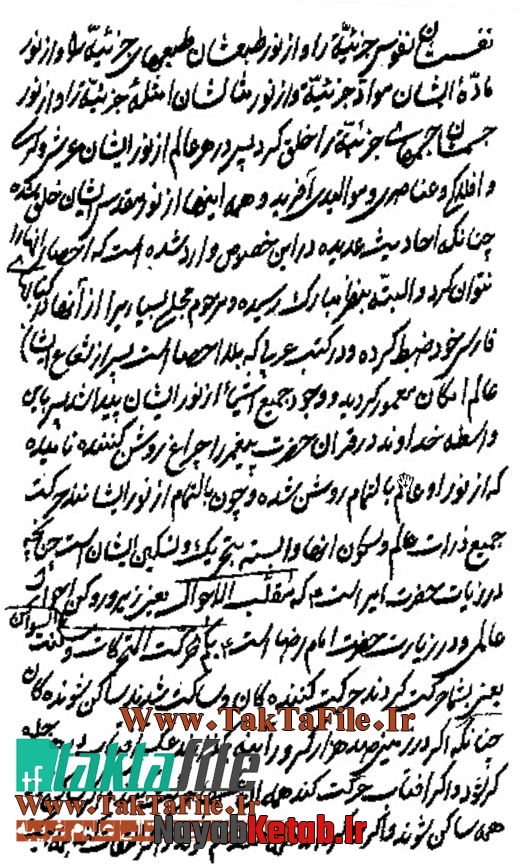 نفسشان نفوس جزئیّه را و از نور طبعشان طبعهای جزئیّه را و از نور
مادّهٔ ایشان موادّ جزئیّه و از نور مثالشان امثلهٔ جزئیّه را و از نور
جسمشان جسمهای جزئیّه را خلق کرد پس در هر عالم از نور ایشان عرشی و کرسی
و افلاکی و عناصری و موالیدی آفرید و همه اینها از نور مقدس ایشان خلق شده
چنانکه احادیث عدیده در این خصوص وارد شده است که احصا آنها را
نتوان کرد و البتّه بنظر مبارک رسیده و مرحوم مجلسی بسیاری را از آنها در کتابهای
فارسی خود ضبط کرده و در کتب عربی که بلا احصا است پس از شعاع ایشان
عالم امکان معمور گردید و وجود جمیع اشیأ از نور ایشان پیدا شد پس باین
واسطه خداوند در قران حضرت پیغمبر را چراغ روشن کننده نامیده
که از نور او عالم بالتمام روشن شده و چون بالتمام از نور ایشانند حرکت
جمیع ذرات عالم و سکون انها وابسته بتحریک و تسکین ایشان است چنانچه
در زیارت حضرت امیر است ع که مقلب الاحوال یعنی زیر و رو کن احوال
عالمی و در زیارت حضرت امام رضا است ع بکم تحرکت المتحرکات و سکنت السواکن
یعنی بشما حرکت کردند حرکت کننده کان و ساکن شدند ساکن شونده کان
چنانکه اگر در زمین صد هزار کرور آینه
گردد و اگر افتاب حرکت کند همه
همه ساکن شوند و اگر
Www.TakTaFile.Ir
taktafile
Www.TakTaFile.Ir
NayabKetab.Ir